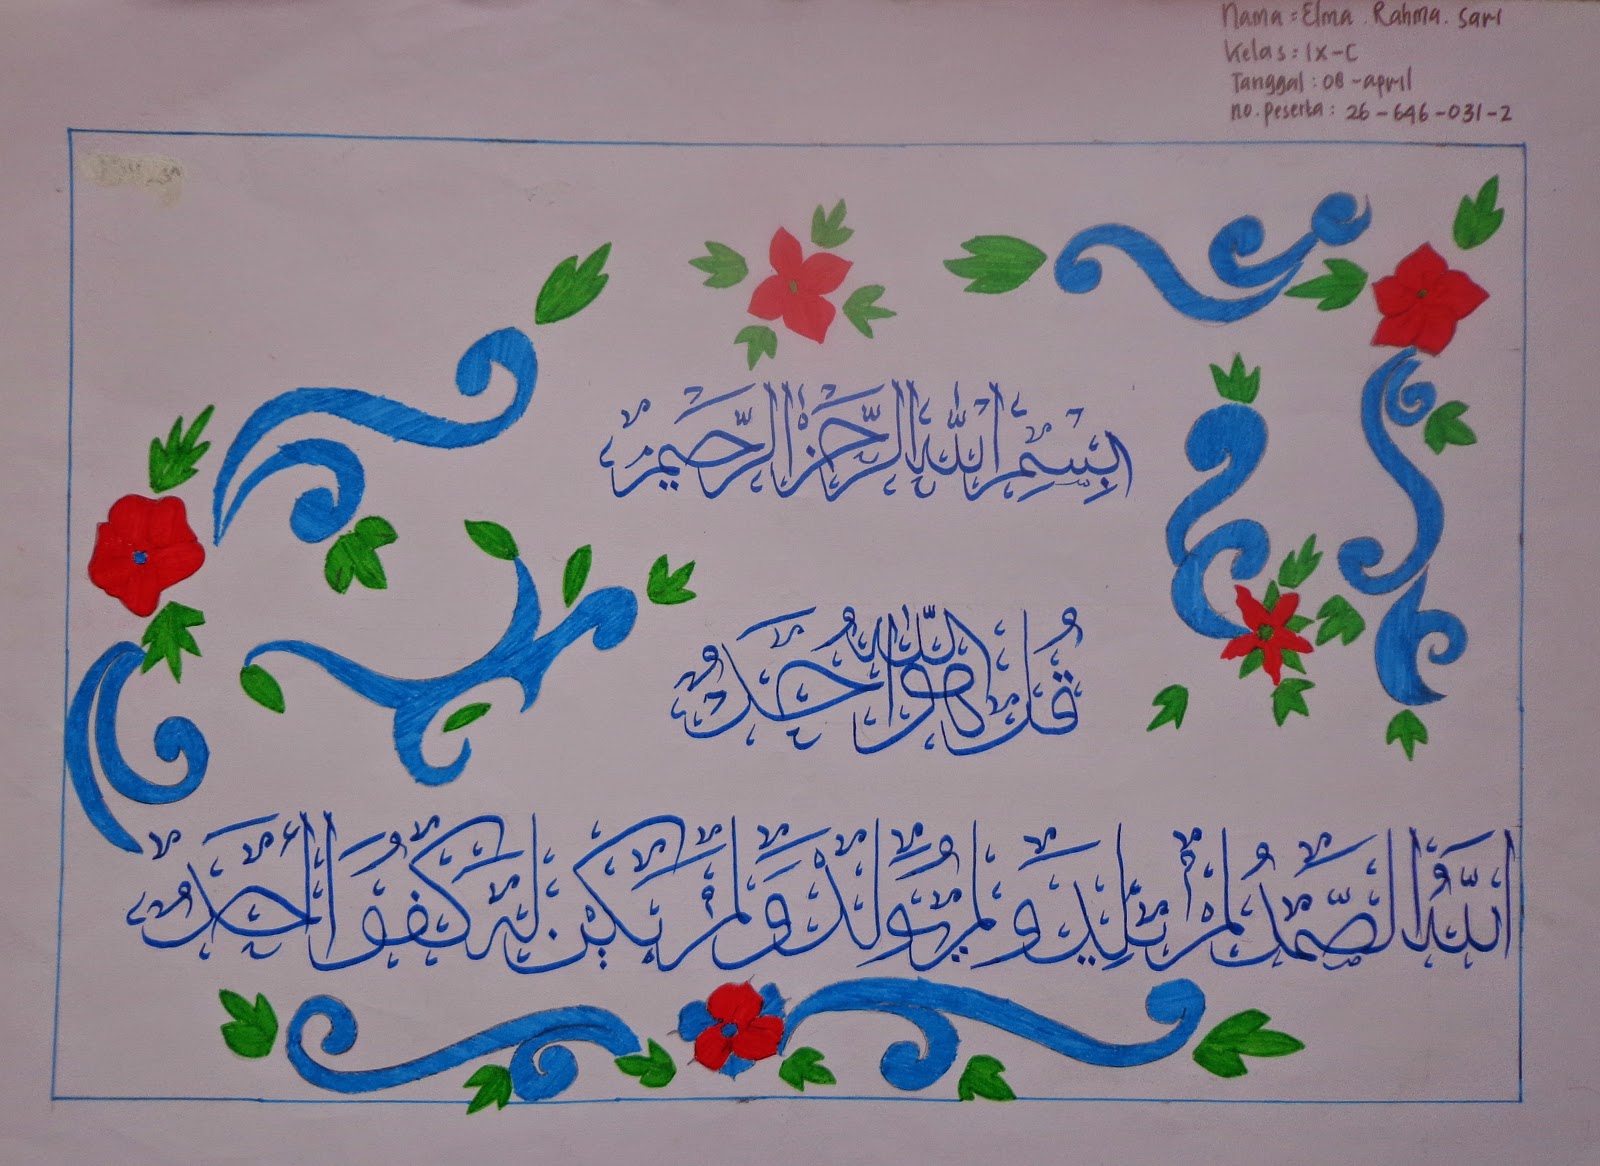 Nama = Elma . Rahma . Sari
Kelas : IX-C
Tanggal : 08 - april
no. peserta : 26 - 646 - 031 - 2
بِسْمِ اللهِ الرَّحْمٰنِ الرَّحِيْمِ
قُلْ هُوَ اللهُ اَحَدٌ
اَللهُ الصَّمَدُ لَمْ يَلِدْ وَلَمْ يُوْلَدْ وَلَمْ يَكُنْ لَهُ كُفُوًا أَحَدٌ